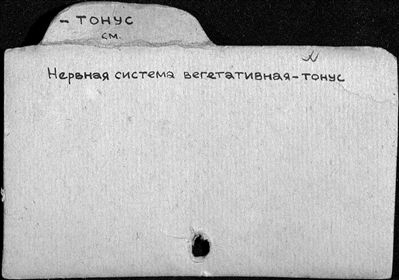 – ТОНУС
см.
Нервная система вегетативная – тонус